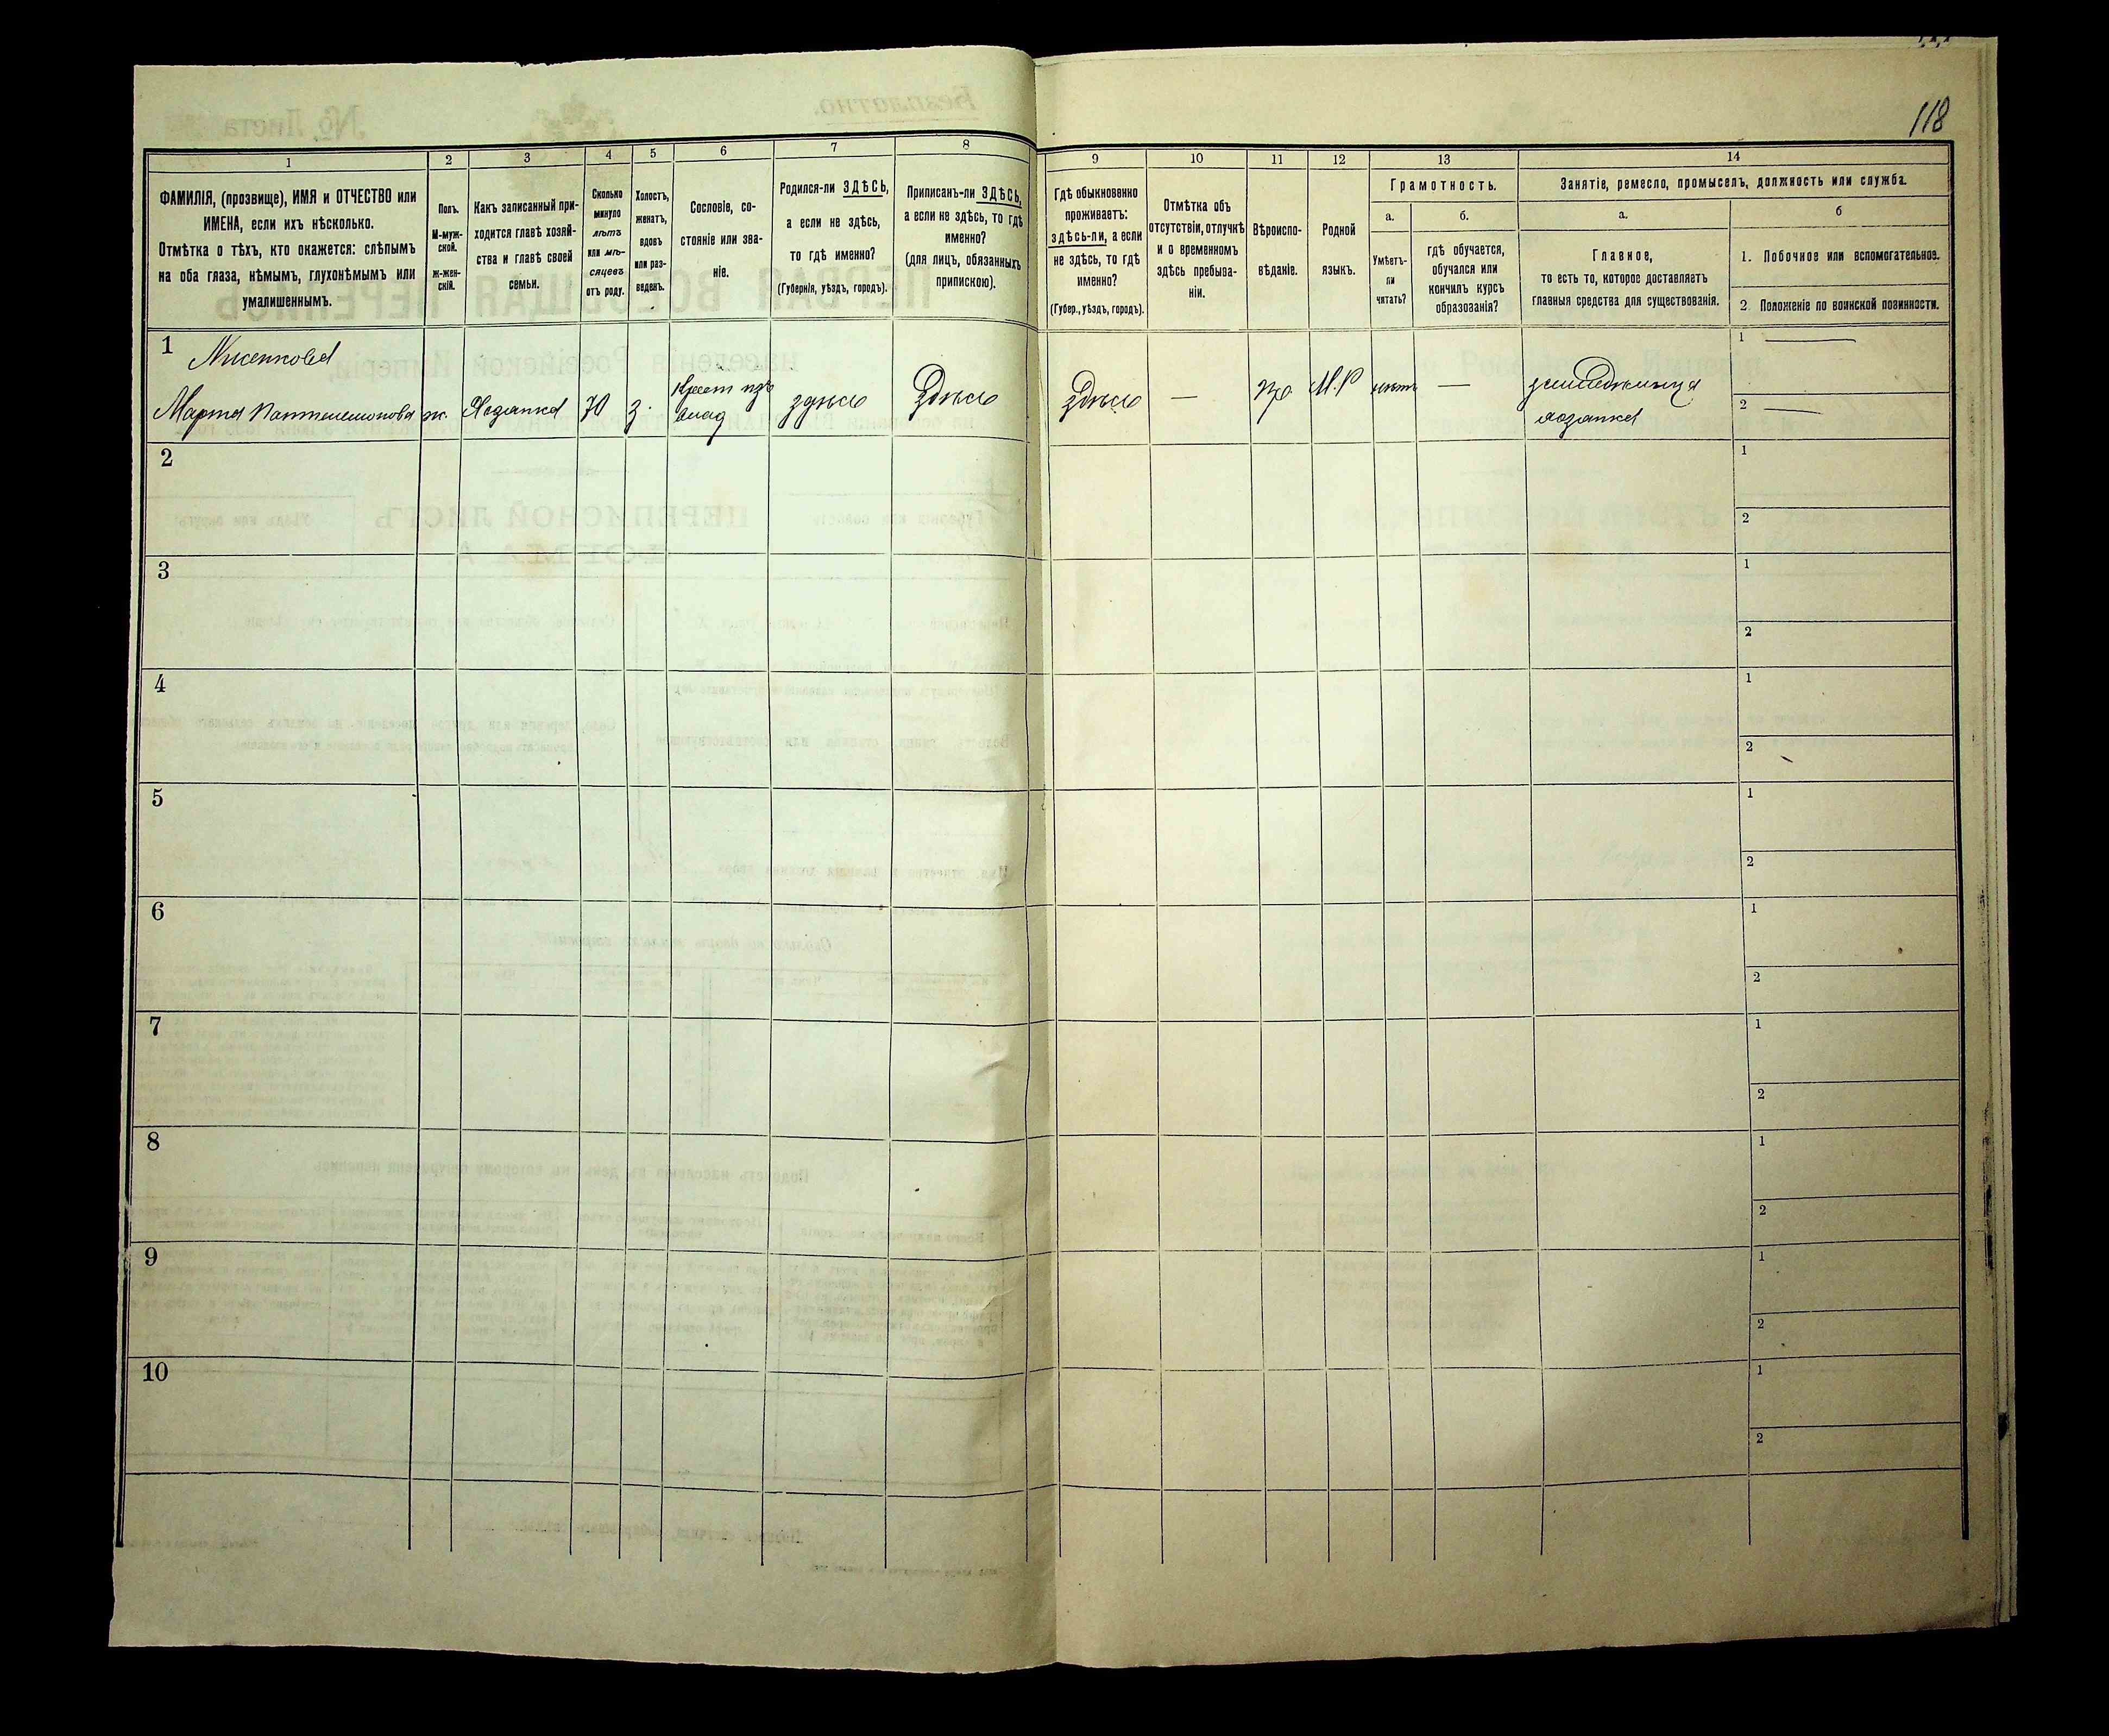 118
1
2
3
4
5
6
7
8
9
10
11
12
13
14
ФАМИЛІЯ, (прозвище), ИМЯ и ОТЧЕСТВО или
ИМЕНА, если ихъ нѣсколько.
Отмѣтка о тѣхъ, кто окажется: слѣпымъ
на оба глаза, нѣмымъ, глухонѣмымъ или
умалишеннымъ.
Полъ.
М-муж-
ской.
ж-жен-
скій.
Какъ записанный при-
ходится главѣ хозяй-
ства и главѣ своей
семьи.
Сколько
минуло
лѣтъ
или мѣ-
сяцевъ
отъ роду.
Холостъ,
женатъ,
вдовъ
или раз-
веденъ.
Сословіе, со-
стояніе или зва-
ніе.
Родился-ли ЗДѢСЬ,
а если не здѣсь,
то гдѣ именно?
(Губернія, уѣздъ, городъ).
Приписанъ-ли ЗДѢСЬ,
а если не здѣсь, то гдѣ
именно?
(для лицъ, обязанныхъ
припискою).
Гдѣ обыкновенно
проживаетъ:
здѣсь-ли, а если
не здѣсь, то гдѣ
именно?
(Губер., уѣздъ, городъ).
Отмѣтка объ
отсутствіи, отлучкѣ
и о временномъ
здѣсь пребыва-
ніи.
Вѣроиспо-
вѣданіе.
Родной
языкъ.
Грамотность.
а.
Умѣетъ-
ли
читать?
б.
гдѣ обучается,
обучался или
кончилъ курсъ
образованія?
Занятіе, ремесло, промыселъ, должность или служба.
а.
Главное,
то есть то, которое доставляетъ
главныя средства для существованія.
б
1. Побочное или вспомогательное.
2. Положеніе по воинской повинности.
1
Марта Пантелемонова
ж.
Хозяйка
70
з.
Крест изъ
влад
здѣсь
Здѣсь
Здѣсь
—
Пр
М.Р
нѣтъ
—
хозяйка
1 —
2 —
2
1
2
3
1
2
4
1
2
5
1
2
6
1
2
7
1
2
8
1
2
9
1
2
10
1
2